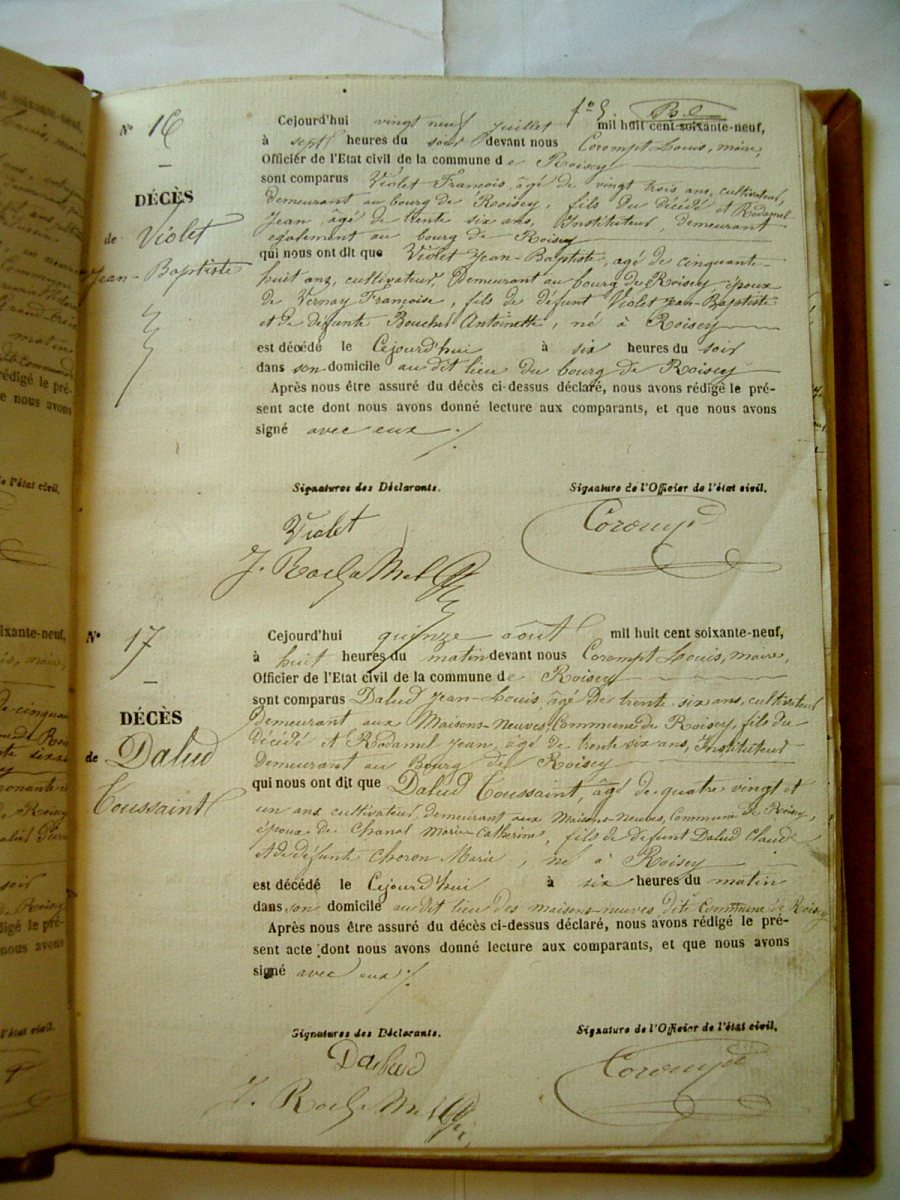 Nº 16
DÉCÈS
de Violet
Jean-Baptiste
Cejourd'hui vingt neuf juillet mil huit cent soixante-neuf,
à sept heures du soir devant nous Corompt Louis, maire,
Officier de l'Etat civil de la commune de Roisey
sont comparus Violet François, âgé de vingt trois ans, cultivateur,
demeurant au bourg de Roisey, fils du décédé et Rodamel
Jean, âgé de trente six ans, Instituteur, demeurant
également au bourg de Roisey
qui nous ont dit que Violet Jean-Baptiste, âgé de cinquante-
huit ans, cultivateur, Demeurant au bourg de Roisey époux
de Vernay Françoise, fils de défunt Violet Jean-Baptiste
et de défunte Bouchet Antoinette, né à Roisey
est décédé le Cejourd'hui à six heures du soir
dans son domicile au dit lieu du bourg de Roisey
Après nous être assuré du décès ci-dessus déclaré, nous avons rédigé le pré-
sent acte dont nous avons donné lecture aux comparants, et que nous avons
signé avec eux
Signatures des Déclarants. Signature de l'Officier de l'état civil.
Violet Corompt
Nº 17
DÉCÈS
de Dalud
Toussaint
Cejourd'hui quinze août mil huit cent soixante-neuf,
à huit heures du matin devant nous Corompt Louis, maire,
Officier de l'Etat civil de la commune de Roisey
sont comparus Dalud Jean-Louis, âgé de trente six ans, cultivateur
Demeurant aux Maisons-Neuves, Commune de Roisey, fils du
décédé et Rodamel Jean, âgé de trente six ans, Instituteur
demeurant au Bourg de Roisey
qui nous ont dit que Dalud Toussaint, âgé de quatre vingt et
un ans, cultivateur, demeurant aux Maisons-neuves, Commune de Roisey,
époux de Chanal Marie Catherine, fils de défunt Dalud Claude
et de défunte Choron Marie, né à Roisey
est décédé le Cejourd'hui à six heures du matin
dans son domicile au dit lieu des maisons-neuves dite Commune de Roisey
Après nous être assuré du décès ci-dessus déclaré, nous avons rédigé le pré-
sent acte dont nous avons donné lecture aux comparants, et que nous avons
signé avec eux
Signatures des Déclarants. Signature de l'Officier de l'état civil.
Dalud Corompt